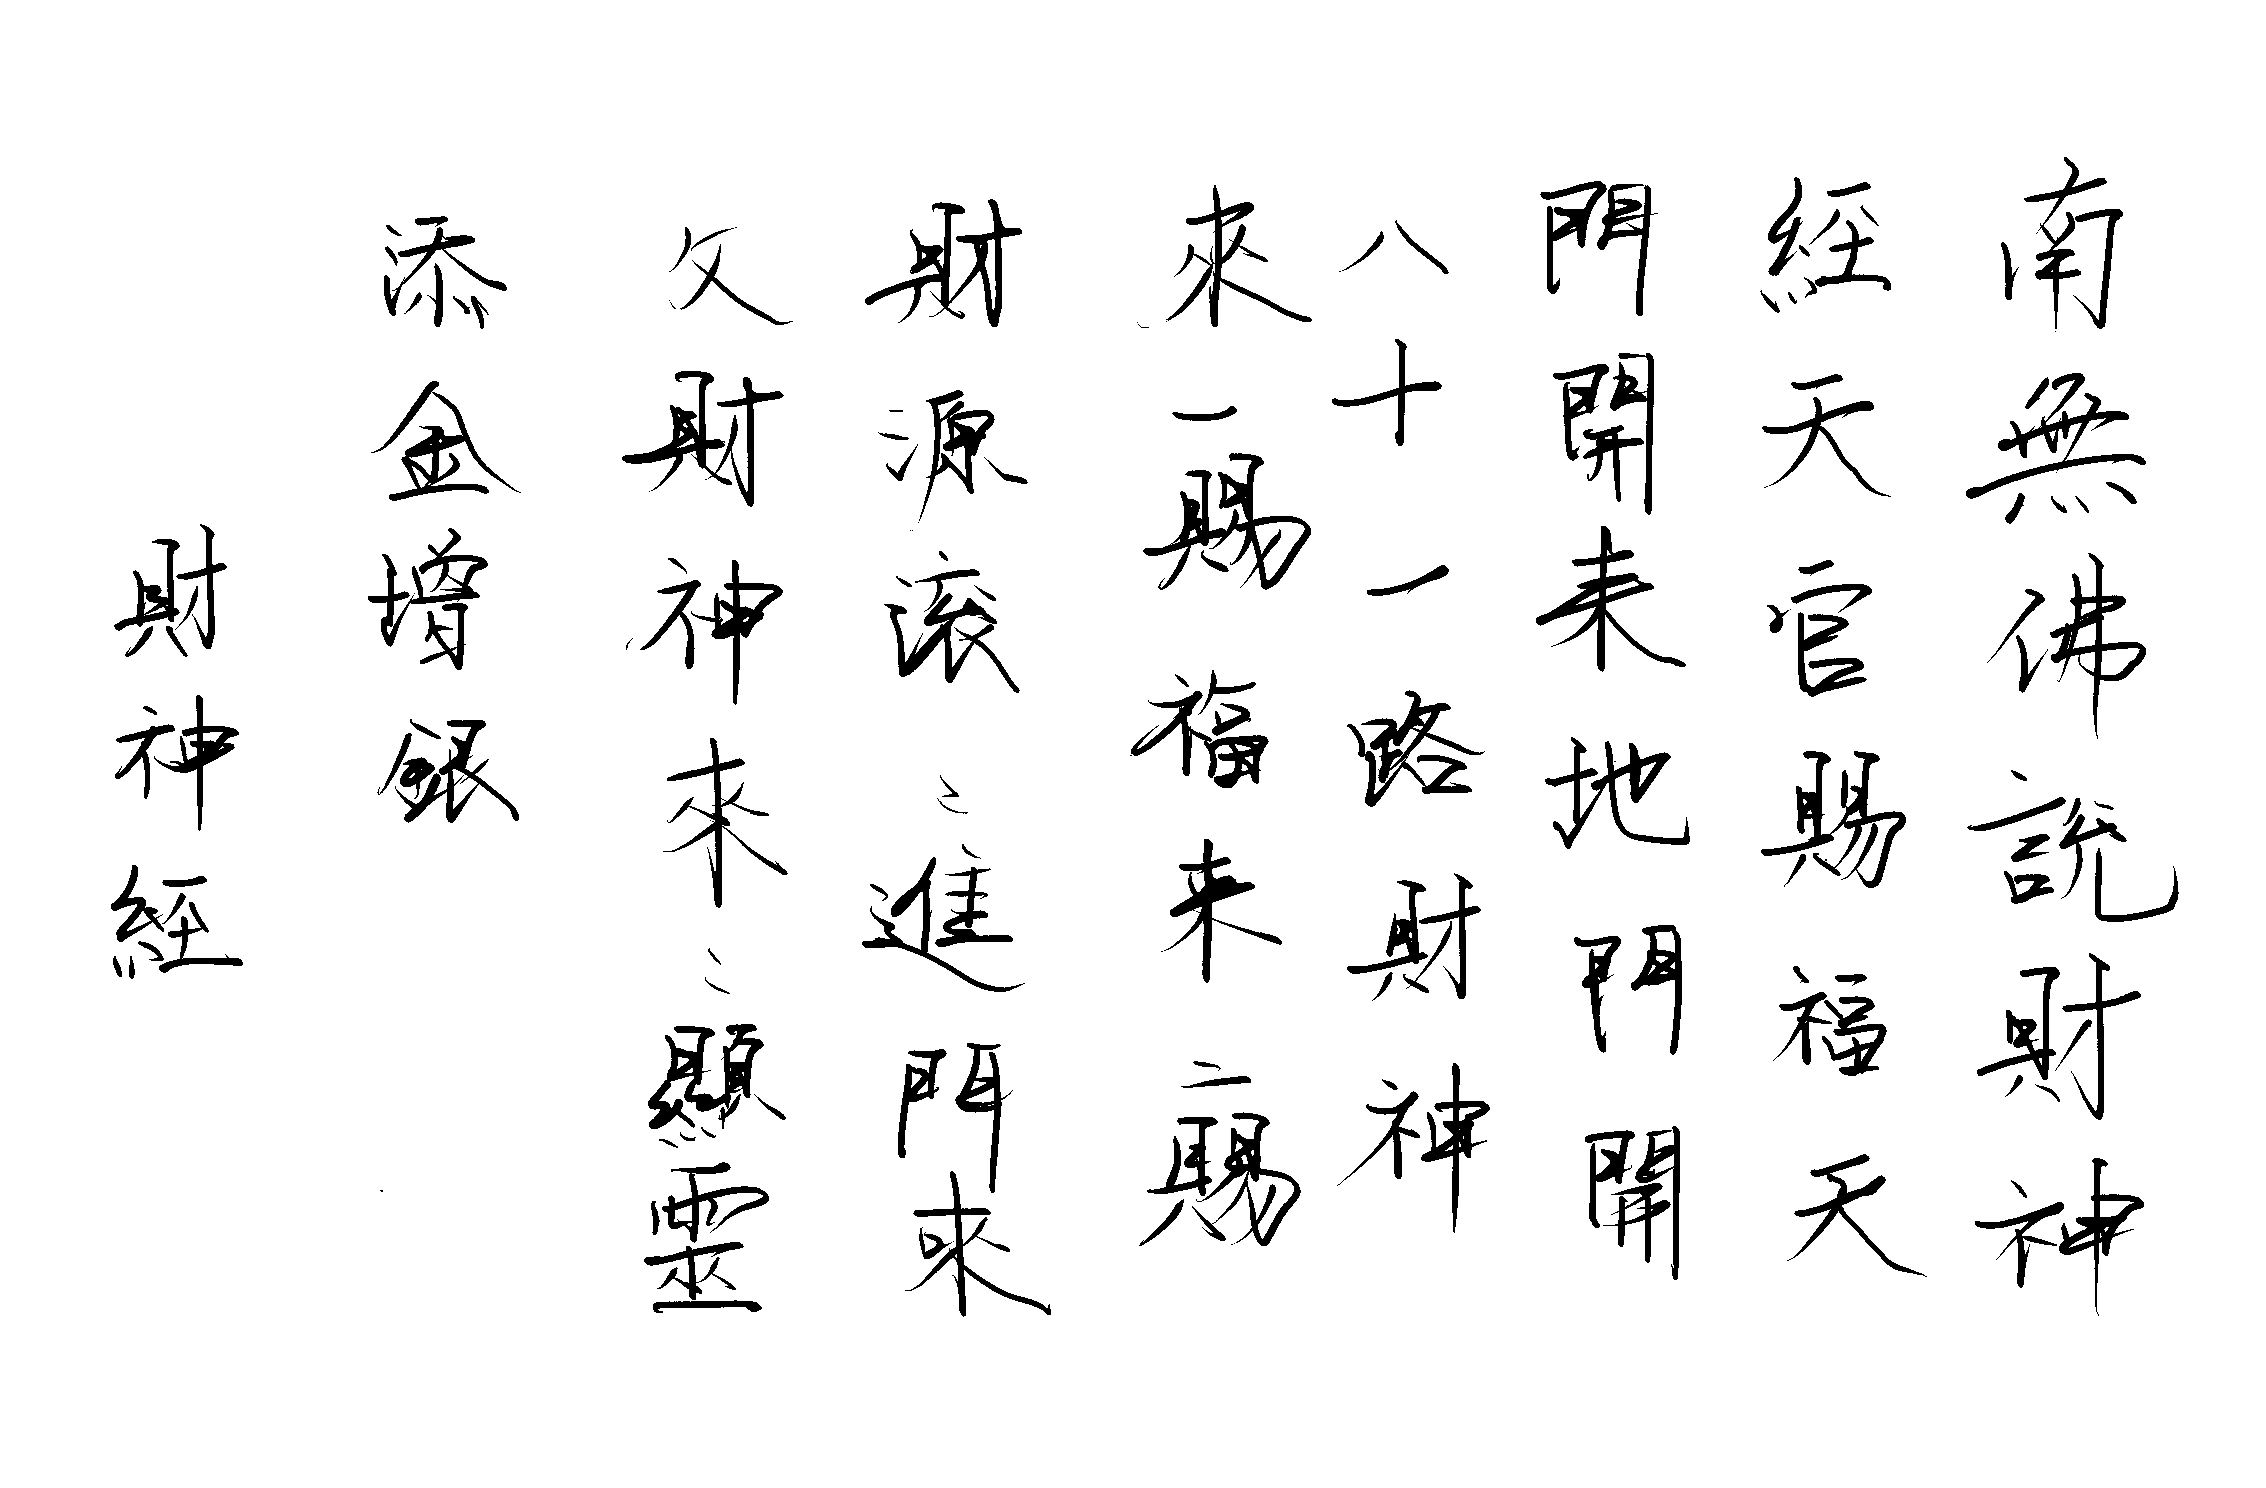 南無佛説財神
經天官賜福天
門開来地門開
八十一路財神
來一賜福来二賜
財源滚〻進門來
文財神來〻顯靈
添金增銀
財神經